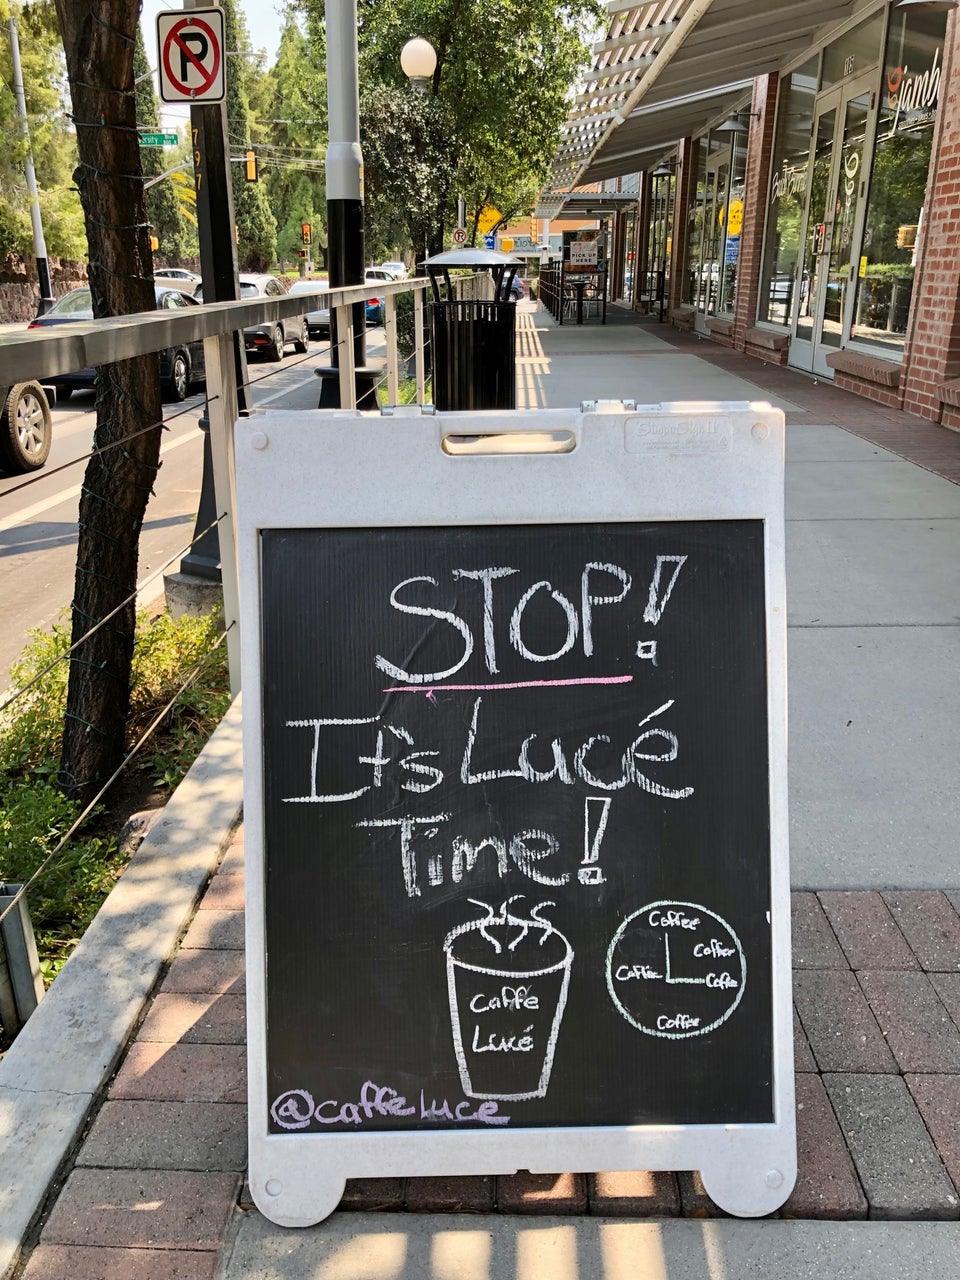 P
797
ersity Blvd
PICK UP
HERE
jamb
STOP!
It's Lucé
Time!
Caffe
Lucé
Coffee
Coffee
Coffee
Coffee
Coffee
@caffeluce